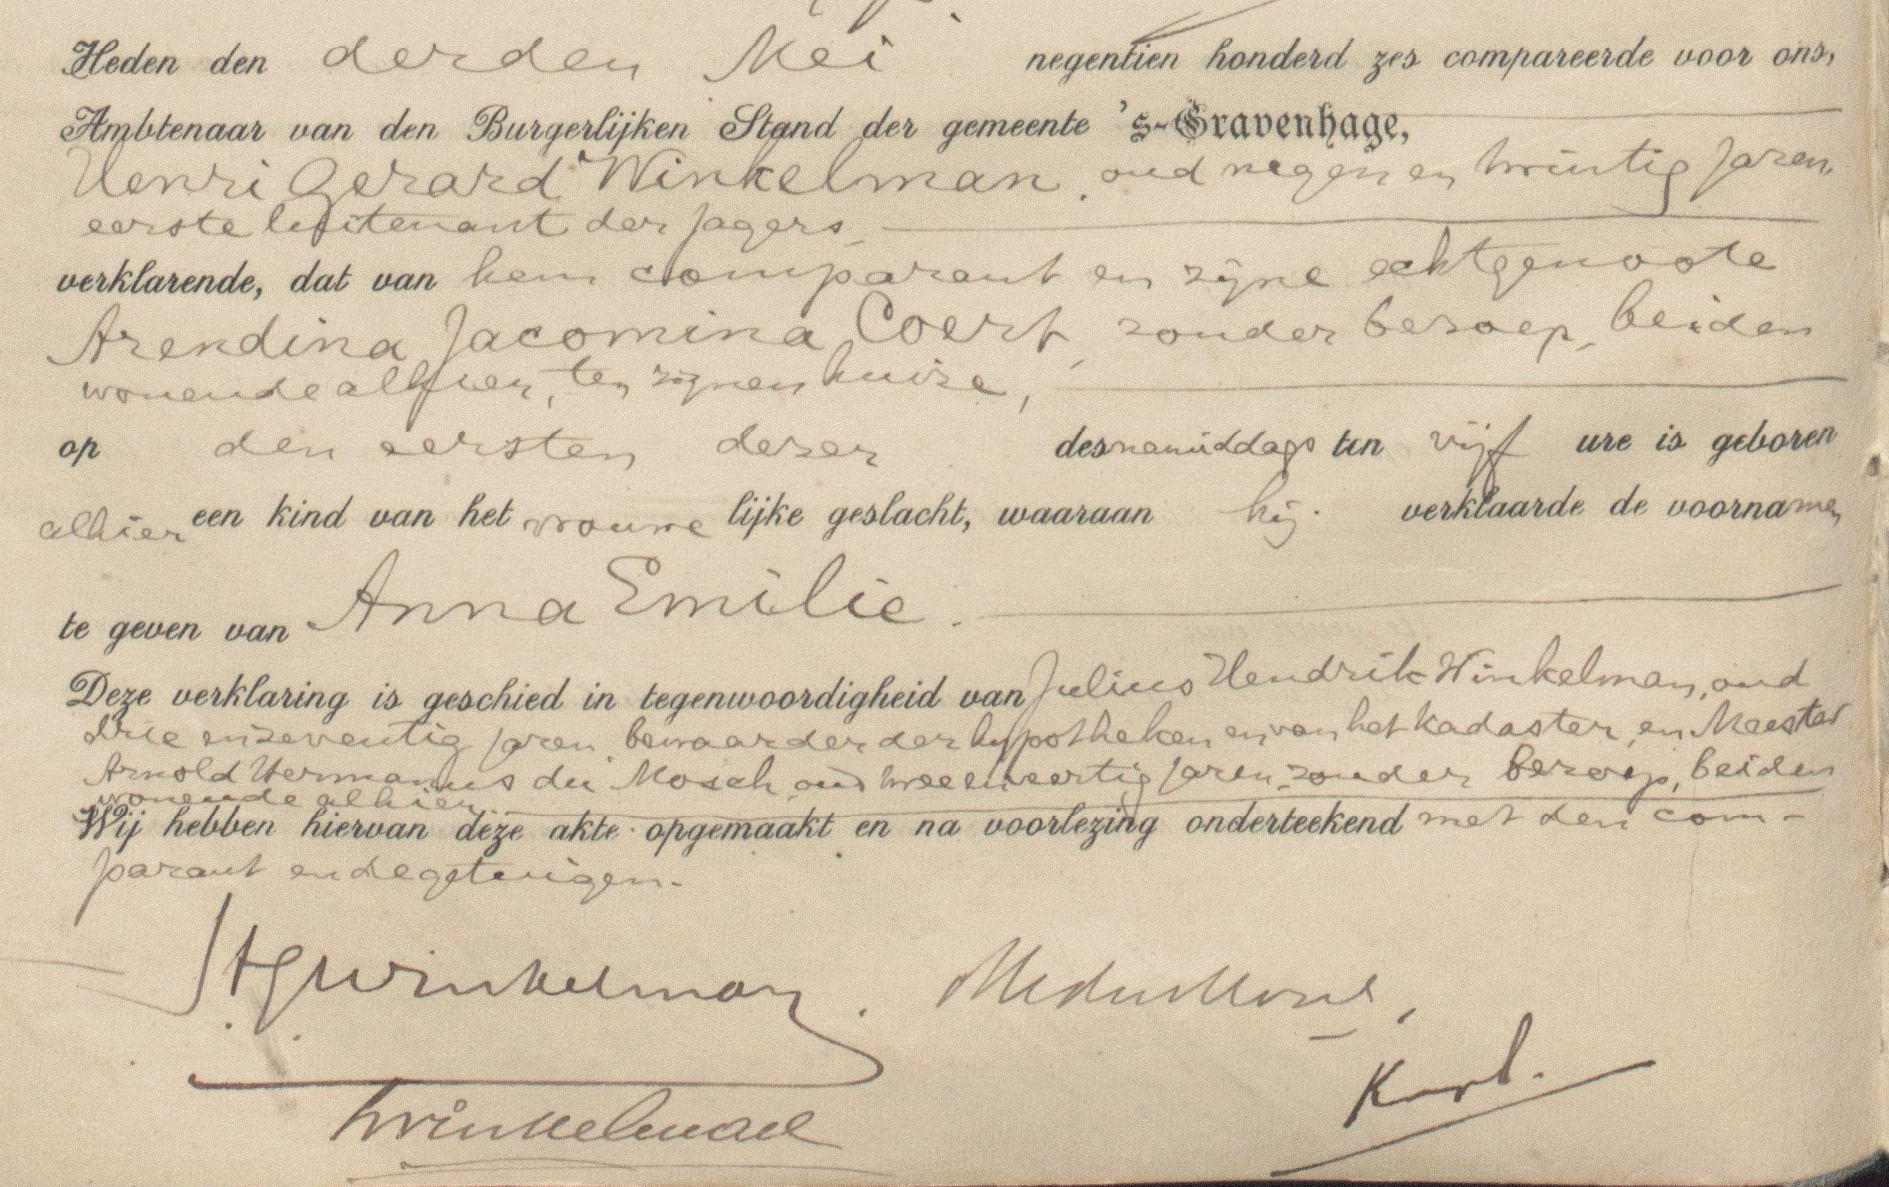 Heden den derden Mei negentien honderd zes compareerde voor ons,
Ambtenaar van den Burgerlijken Stand der gemeente 's-Gravenhage,
Henri Gerard Winkelman, oud negen en twintig jaren,
eerste luitenant der jagers,
verklarende, dat van hem comparant en zijne echtgenoote
Arendina Jacomina Coert, zonder beroep, beiden
wonende alhier, ten zijnen huize,
op den eersten dezer des namiddags ten vijf ure is geboren
alhier een kind van het vrouwe lijke geslacht, waaraan hij verklaarde de voornamen
te geven van Anna Emilie.
Deze verklaring is geschied in tegenwoordigheid van Julius Hendrik Winkelman, oud
drie en zeventig jaren, bewaarder der hypotheken en van het kadaster, en Meester
Arnold Hermanus du Mosch, oud twee en veertig jaren, zonder beroep, beiden
wonende alhier.
Wij hebben hiervan deze akte opgemaakt en na voorlezing onderteekend met den com-
parant en de getuigen.
HGWinkelman.
Winkelman